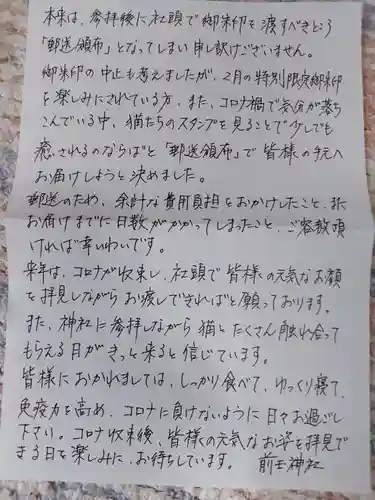 本来は、参拝後に社頭で御朱印を渡すべきところ
「郵送頒布」となってしまい申し訳ございません。
御朱印の中止も考えましたが、2月の特別限定御朱印
を楽しみにされている方、また、コロナ禍で気分が落ち
こんでいる中、猫たちのスタンプを見ることで少しでも
癒されるのならばと「郵送頒布」で皆様の手元へ
お届けしようと決めました。
郵送のため、余計な費用負担をおかけしたこと、また
お届けまでに日数がかかってしまったこと、ご容赦頂
ければ幸いわいです。
来年は、コロナが収束し、社頭で皆様の元気なお顔
を拝見しながらお渡しできればと願っております。
また、神社に参拝しながら猫とたくさん触れ合って
もらえる日がきっと来ると信じています。
皆様におかれましては、しっかり食べて、ゆっくり寝て、
免疫力を高め、コロナに負けないように日々お過ごし
下さい。コロナ収束後、皆様の元気なお姿を拝見で
きる日を楽しみに、お待ちしています。 前玉神社